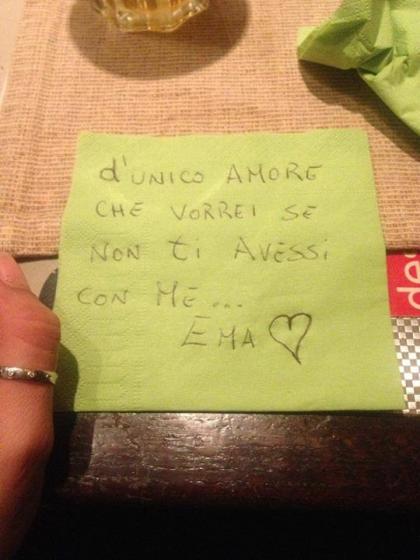 d'UNICO AMORE
CHE VORREI SE
NON ti AVESSI
CON ME...
EMA ♡
de